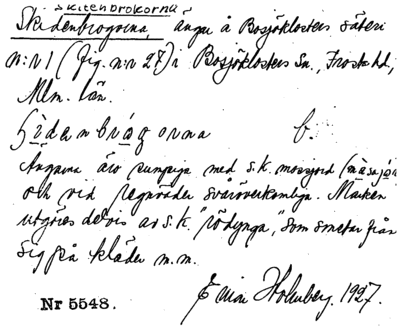 Skitenbrokorna
Skidenbrogorna, ängar å Bosjöklosters säteri
n:r 1 (fig. n:r 27) i Bosjöklosters Sn., Frosta hd,
Mlm. län.
b.
Ängarna äro sumpiga med s.k. mossjord
och vid regnväder svåröverkomliga. Marken
utgöres delvis av s.k. "rödynga", som smetar ifrån
sig på kläder m.m.
Holmberg. 1927.
Nr 5548.